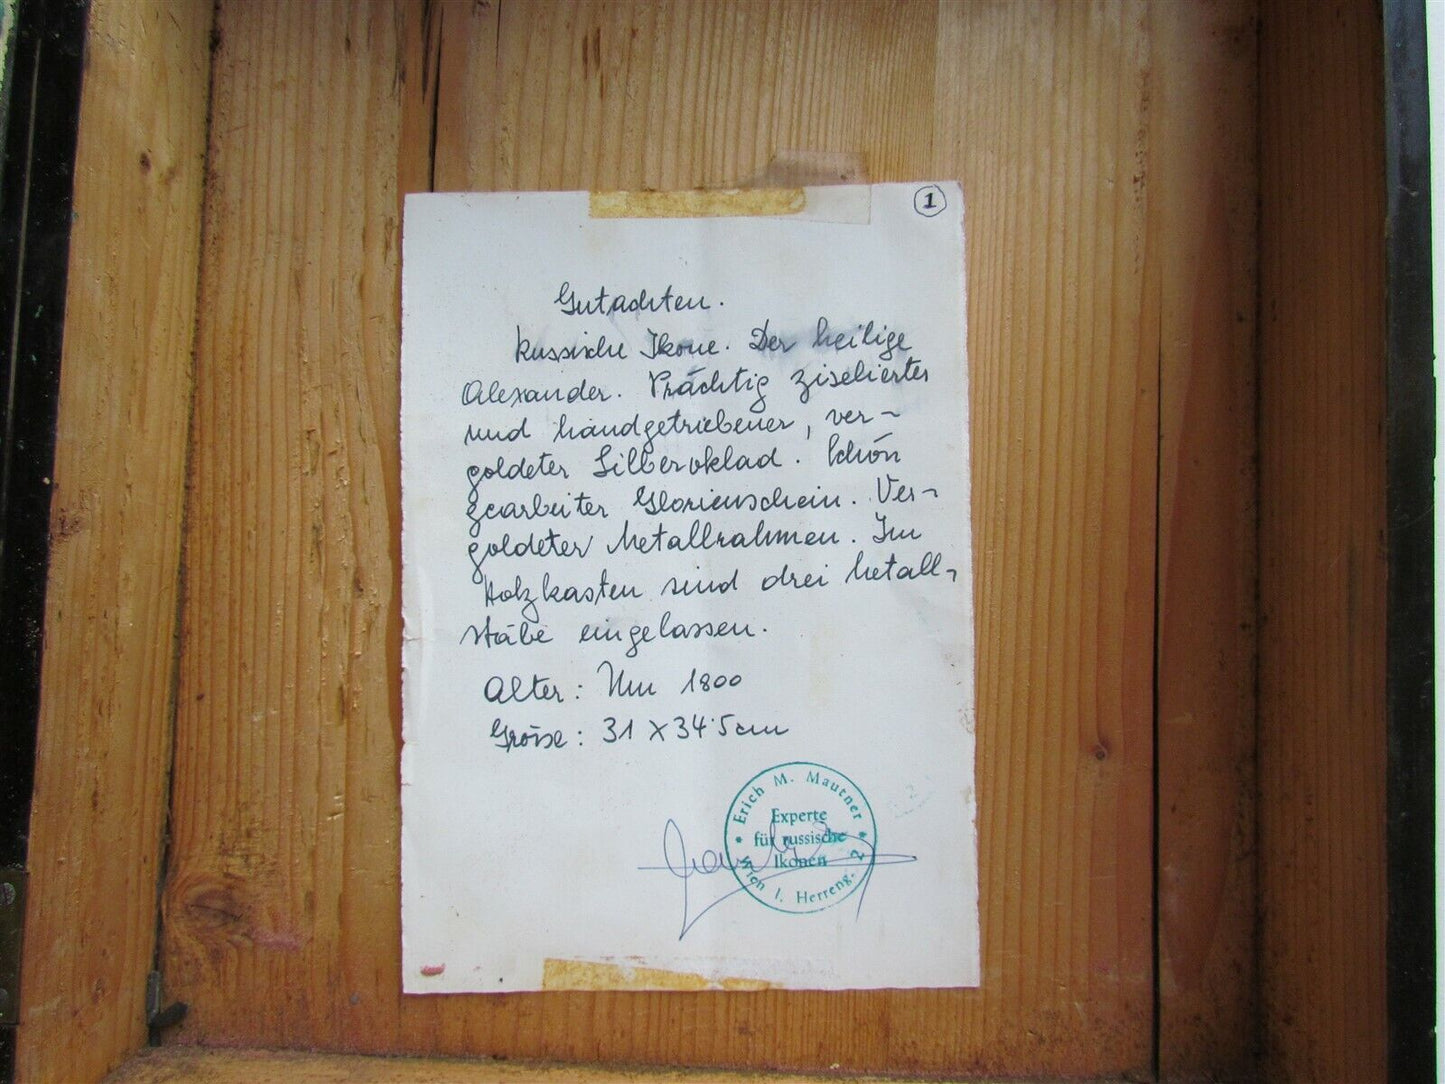 1
Gutachten.
Russische Ikone. Der heilige
Alexander. Prächtig ziselierter
und handgetriebener, ver-
goldeter Silberoklad. Schön
gearbeiter Glorienschein. Ver-
goldeter Metallrahmen. Im
Holzkasten sind drei Metall-
stäbe eingelassen.
Alter: Um 1800
Grösse: 31 X 34·5cm
Erich M. Mautner
Experte
für russische
Ikonen
Wien I. Herreng. 2